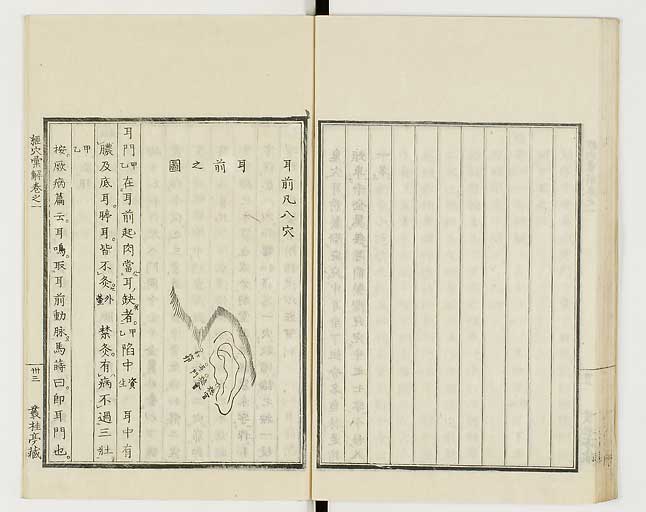 耳前凡八穴
耳前之圖
耳門甲乙在耳前起肉當耳缺者甲乙陷中資生耳中有
膿及底耳聤耳皆不灸外臺禁灸有病不過三壯
甲乙
按厥病篇云耳鳴取耳前動脉馬蒔曰即耳門也
經穴彙解卷之一
卅三
叢桂亭藏